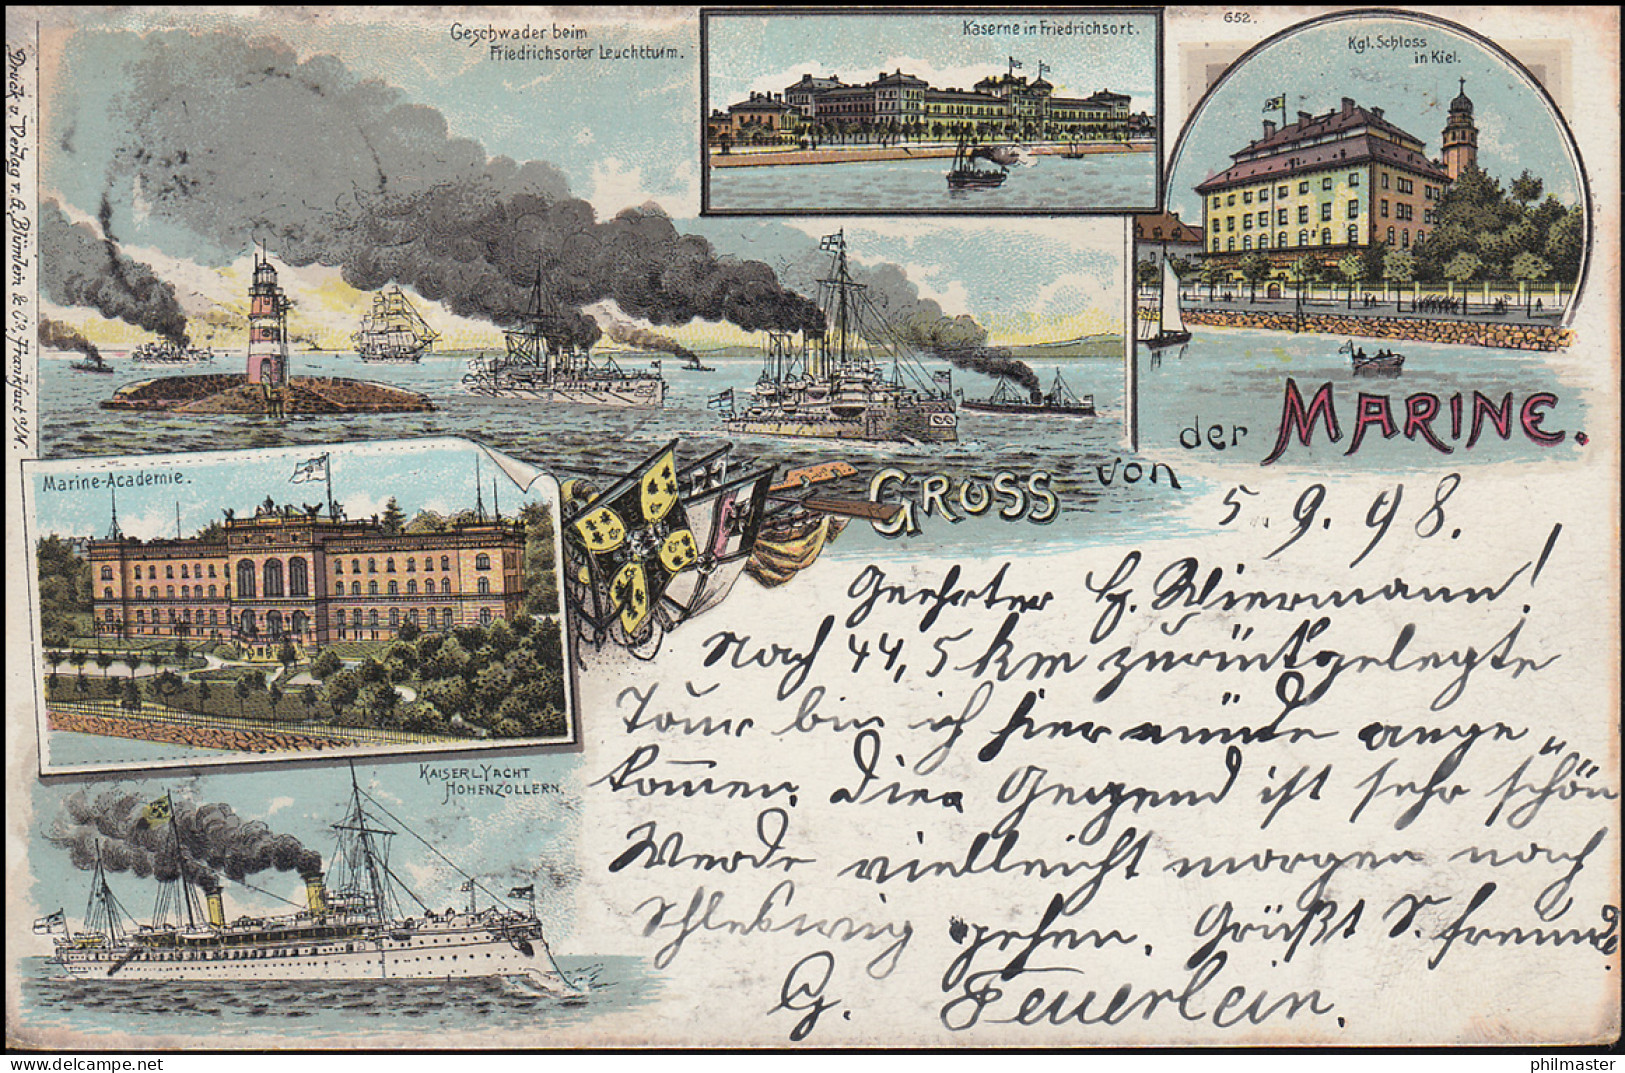 Geschwader beim
Friedrichsorter Leuchtturm.
Kaserne in Friedrichsort.
652.
Kgl. Schloss
in Kiel.
Druck u. Verlag v. A. Blümlein & Co, Frankfurt a/M.
Marine-Academie.
GRUSS von der MARINE.
KAISERL. YACHT
HOHENZOLLERN.
5 9. 98.
Geehrter H. Wiermann!
Nach 44,5 km zurückgelegte
Tour bin ich hier müde ange
kommen. Die Gegend ist sehr schön
Werde vielleicht morgen nach
Schleswig gehen. Grüßt S. Freund
G. Feuerlein.
philmaster